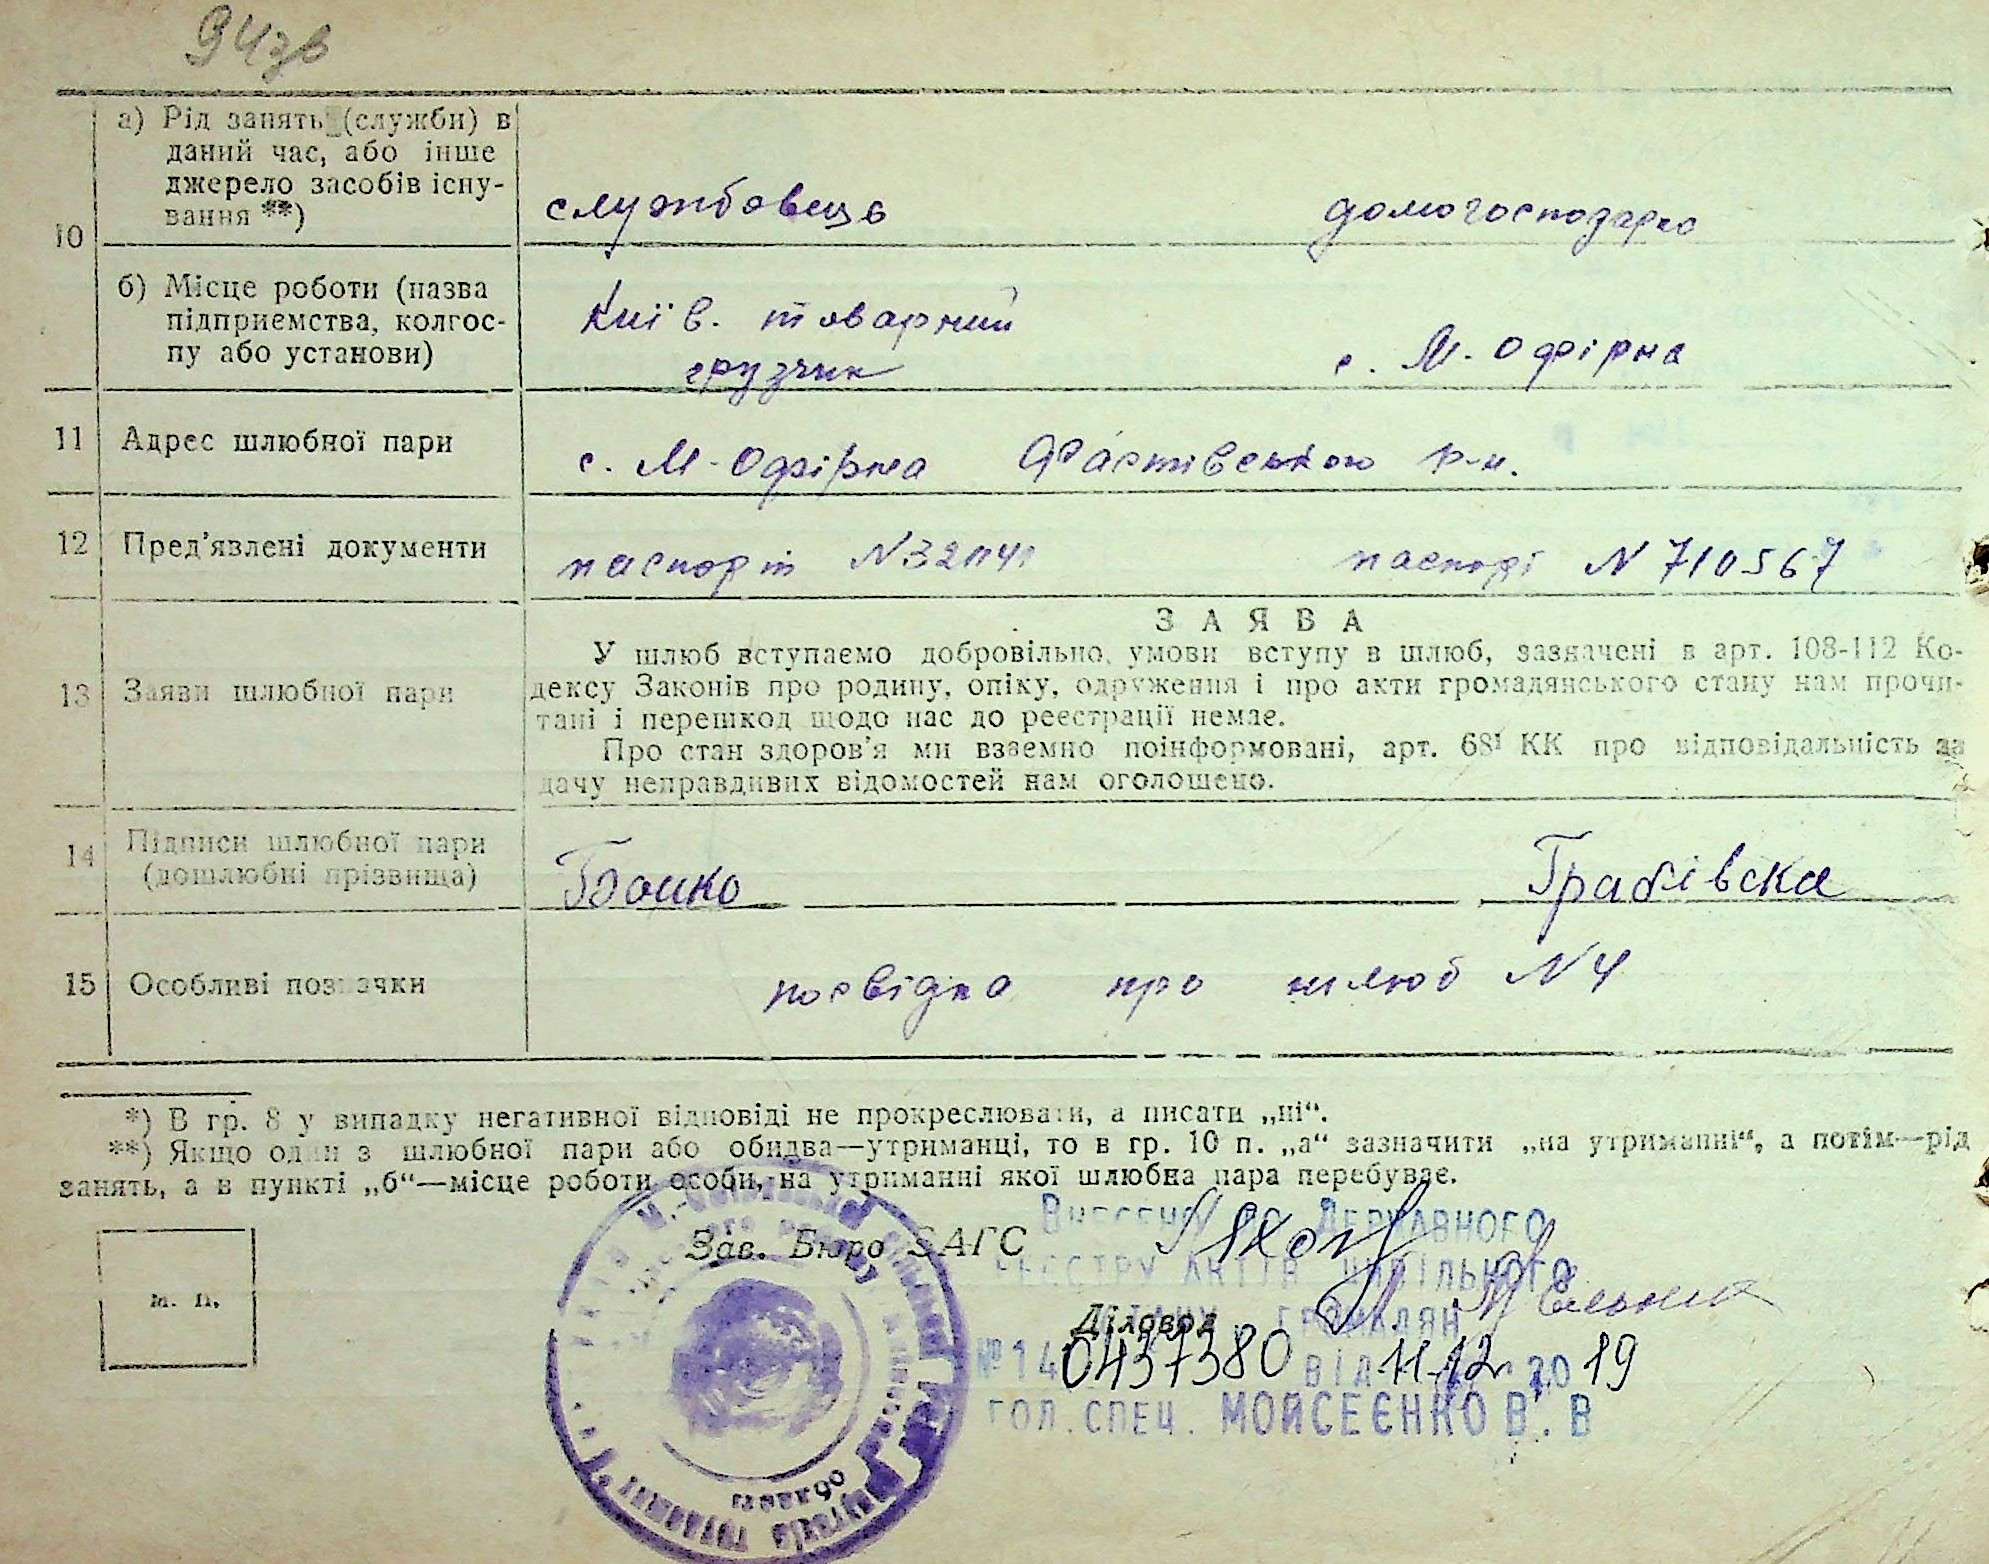 94зв
а) Рід занять (служби) в
даний час, або інше
джерело засобів існу-
вання **)
10
службовець
домогосподарка
б) Місце роботи (назва
підприємства, колгос-
пу або установи)
Київ. товарний
грузчик
с. М-Офірна
11 Адрес шлюбної пари с. М-Офірна Фастівського р-н.
12 Пред'явлені документи паспорт N паспорт N 710567
З А Я В А
У шлюб вступаємо добровільно, умови вступу в шлюб, зазначені в арт. 108-112 Ко-
13 Заяви шлюбної пари дексу Законів про родину, опіку, одруження і про акти громадянського стану нам прочи-
тані і перешкод щодо нас до реєстрації немає.
Про стан здоров'я ми взаємно поінформовані, арт. 68¹ КК про відповідальність за
дачу неправдивих відомостей нам оголошено.
14 Підписи шлюбної пари
(дошлюбні прізвища)
Бойко Грабівска
15 Особливі позначки посвідка про шлюб N 4
*) В гр. 8 у випадку негативної відповіді не прокреслювати, а писати „ні“.
**) Якщо один з шлюбної пари або обидва—утриманці, то в гр. 10 п. „а“ зазначити „на утриманні“, а потім—рід
занять, а в пункті „б“—місце роботи особи, на утриманні якої шлюбна пара перебуває.
Зав. Бюро ЗАГС
Внесено до Державного
реєстру актів цивільного
стану громадян
Діловод
№ 14 0437380 від 11.12 2019
гол. спец. Мойсеєнко В. В
м. п.
області